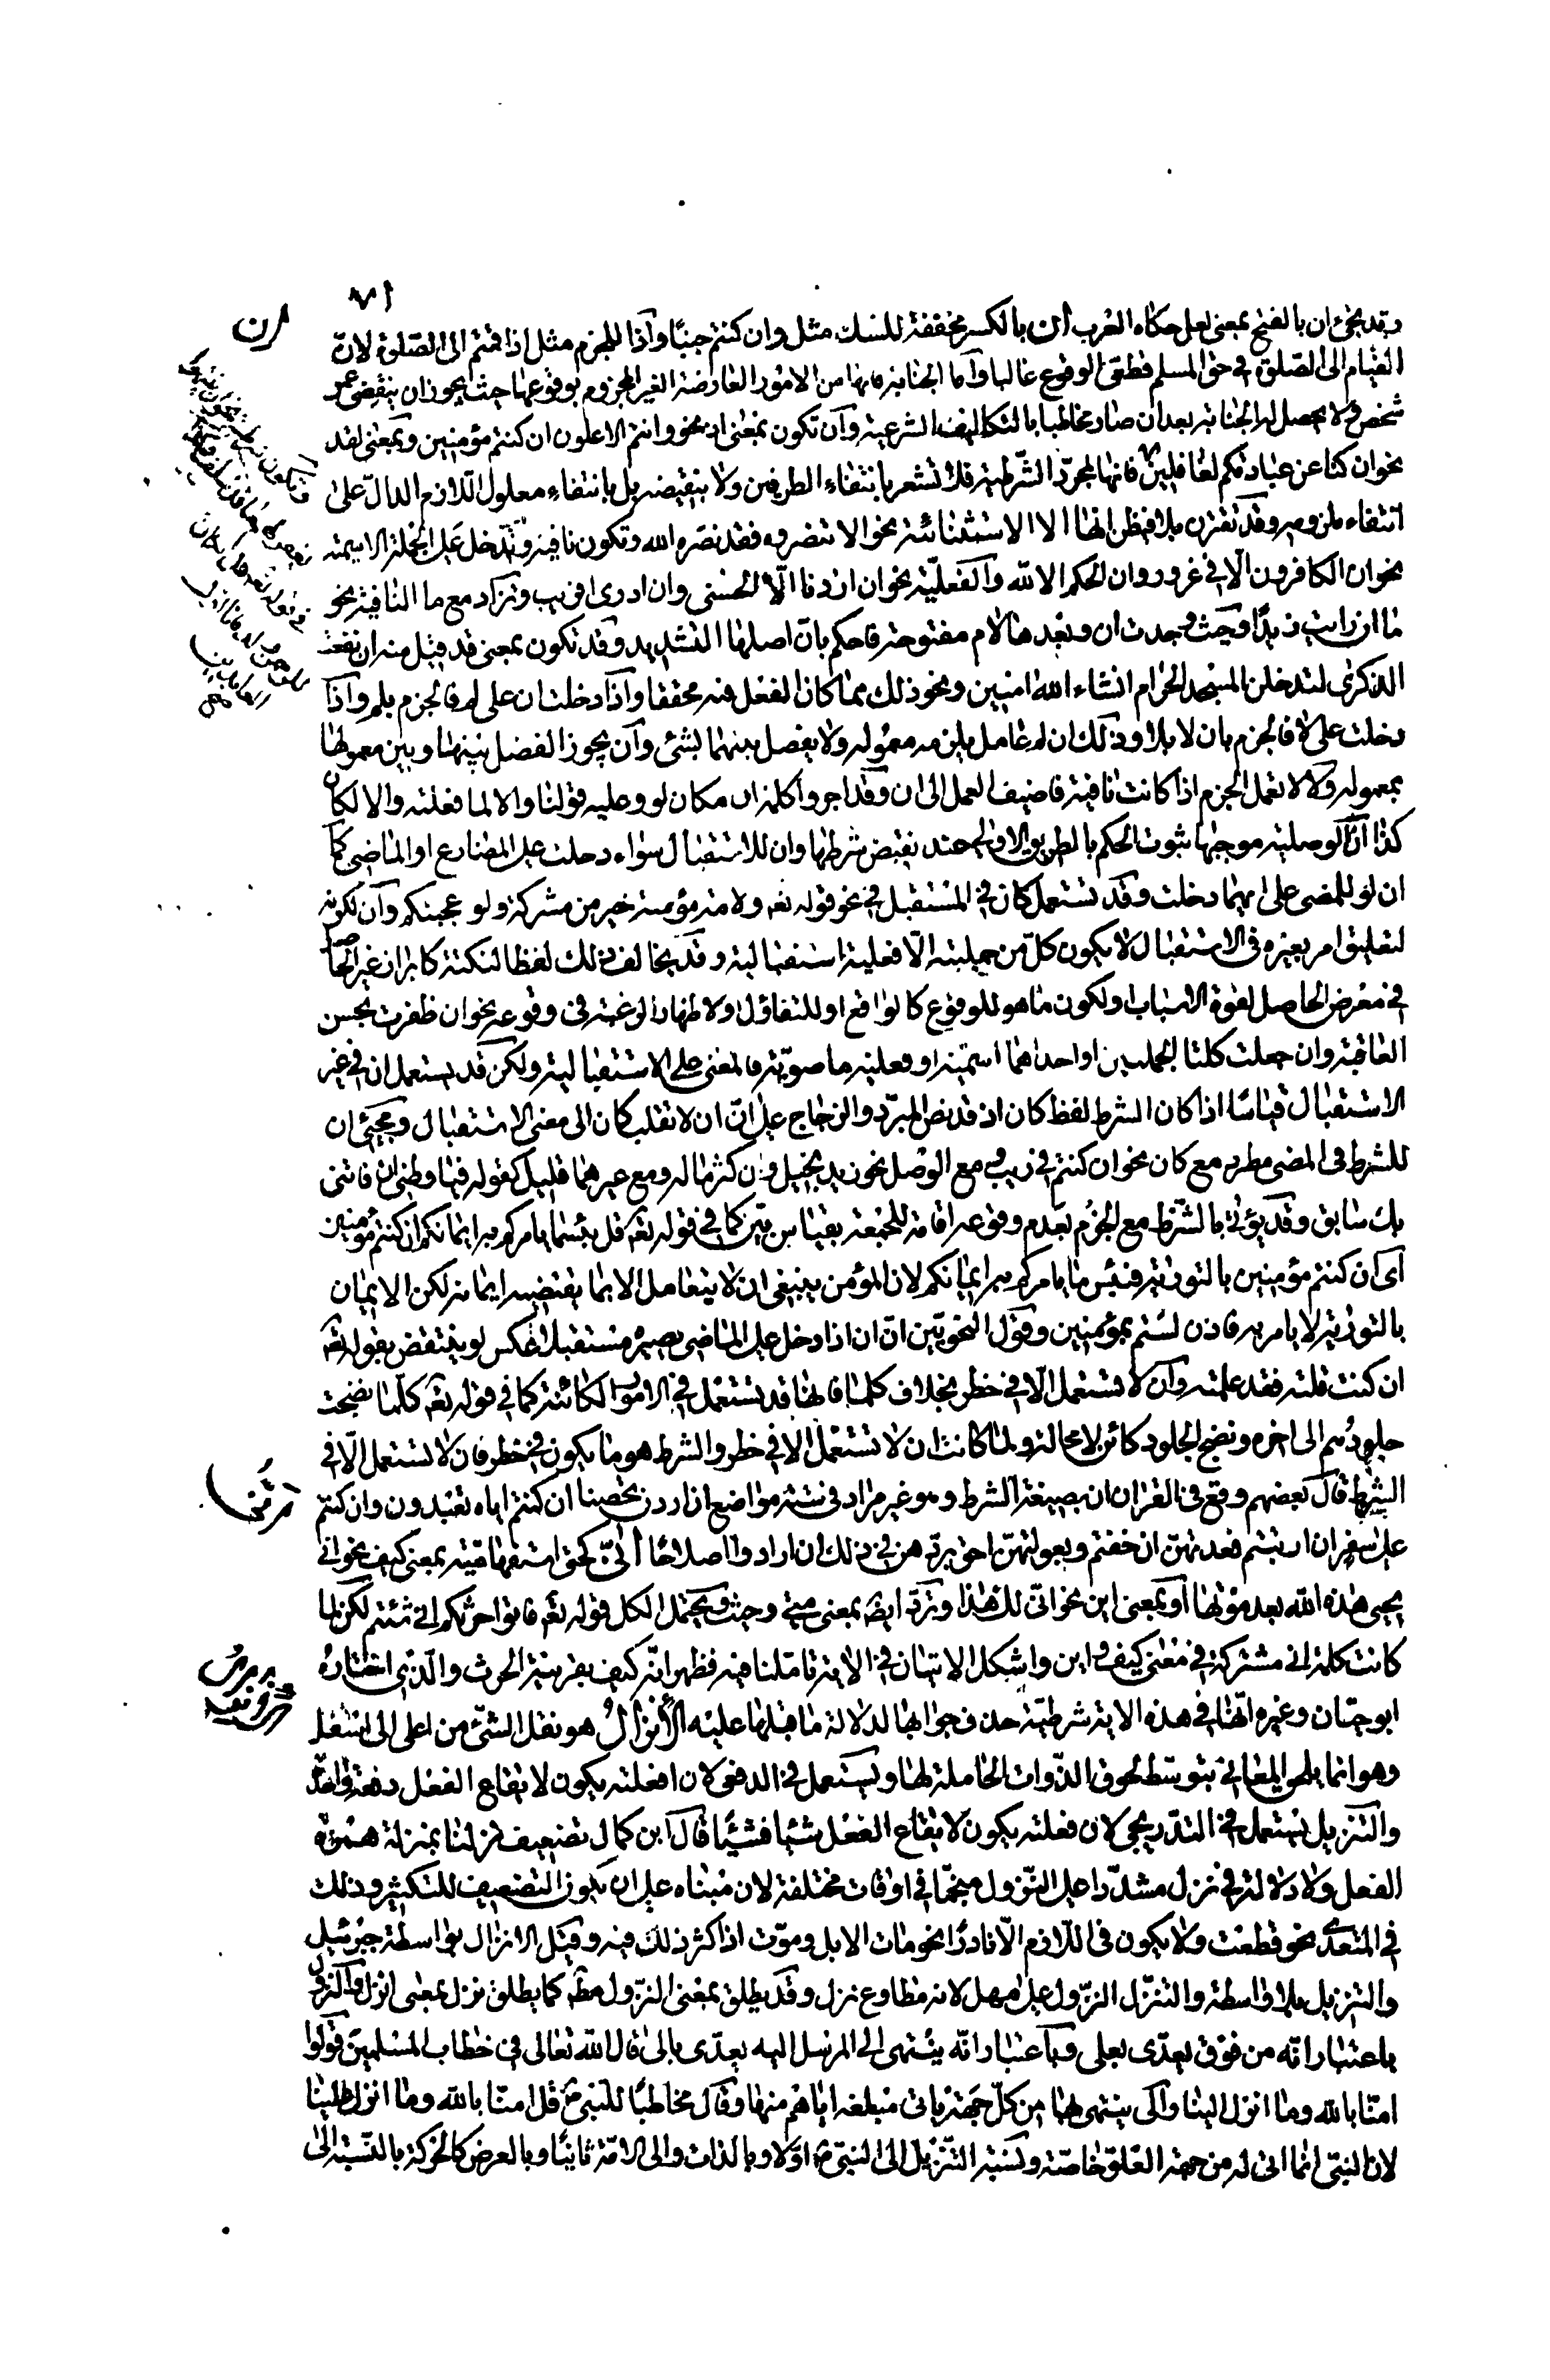 ٧١
وقد يجئ ان بالفتح بمعنى لعل حكاه العرب ان بالكسر مخففة للشك مثل وان كنتم جنبًا واذا للجزم مثل اذا قمتم الى الصّلوة لانّ
القيام الى الصّلوة فى حق المسلم قطعى الوقوع غالبا واما الجنابة فانها من الامور العارضة الغير المجزوم بوقوعها حيث يجوز ان ينقضى عمر
شخص ولا يحصل له الجنابة بعد ان صار مخاطبا بالتكاليف الشرعية وان تكون بمعنى اذ نحو وانتم الاعلون ان كنتم مؤمنين وبمعنى لقد
نحو ان كنا عن عبادتكم لغافلين فانها لمجرّد الشّرطية فلا تشعر بانتفاء الطرفين ولا بنقيضه بل بانتفاء معلول اللازم الدالّ على
انتفاء ملزومه وقد تقترن بلا فيظن انها الا الاستثنائية نحو الا تنصروه فقد نصره الله وتكون نافية وتدخل على الجملة الاسمية
نحو ان الكافرون الّا فى غرور وان الحكم الا لله والفعليّة نحو ان اردنا الّا الحسنى وان ادرى اقريب وتزاد مع ما النافية نحو
ما ان رايت زيدًا وحيث وجدت ان وبعدها لام مفتوحة فاحكم بانّ اصلها التشديد وقد تكون بمعنى قد قيل منه ان نفعت
الذكرى لتدخلن المسجد الحرام انشاء الله امنين ونحو ذلك مما كان الفعل فيه محققا واذا دخلت ان على لم فالجزم بلم واذا
دخلت على لا فالجزم بان لا بلا وذلك ان لم عامل يلزمه معموله ولا يفصل بينهما بشئ وان يجوز الفصل بينها وبين معمولها
بمعموله ولا لا تعمل الجزم اذا كانت نافية فاضيف العمل الى ان وقد اجروا كلمة ان مكان لو وعليه قولنا والا لما فعلته والا لكان
كذا ان الوصلية موجبها ثبوت الحكم بالطريق الاولى عند نقيض شرطها وان للاستقبال سواء دخلت على المضارع او الماضى كما
ان لو للمضى على ايهما دخلت وقد تستعمل كان فى المستقبل فى نحو قوله تعه ولامة مؤمنة خير من مشركة ولو اعجبتكم وان لكونه
لتعليق امر بغيره فى الاستقبال لا يكون كلّ من جملتيه الّا فعلية استقبالية وقد يخالف ذلك لفظا لنكتة كابراز غير الحاصل
فى معرض الحاصل لقوة الاسباب او لكون ما هو للوقوع كالواقع او للتفاؤل او لاظهار الرغبة فى وقوعه نحو ان ظفرت بحسن
العاقبة وان جعلت كلتا الجملتين او احداهما اسميّة او فعلية ماضويّة فالمعنى على الاستقبالية ولكن قد يستعمل ان فى غير
الاستقبال قياسًا اذا كان الشرط لفظ كان اذ قد نص المبرّد والزجاج على انّ ان لا تقلب كان الى معنى الاستقبال ومجيئ ان
للشرط فى المضى مطرد مع كان نحو ان كنتم فى ريب ومع الوصل نحو زيد بخيل وان كثر ماله ومع غيرهما قليل كقوله فيا وطنى ان فاتنى
بك سابق وقد يؤتى بالشّرط مع الجزم بعدم وقوعه اقامة للحجة بقياس بيّن كما فى قوله تعه قل بئسما يامركم به ايمانكم ان كنتم مؤمنين
اى ان كنتم مؤمنين بالتورية فبئس ما يامركم به ايمانكم لان المؤمن ينبغى ان لا يتعامل الا بما يقتضيه ايمانه لكن الايمان
بالتورية لا يامر به فاذن لستم بمؤمنين وقول النحويّين انّ ان اذا دخل على الماضى يصير مستقبلا عكس لو ينتقض بقوله تعه
ان كنت قلته فقد علمته وان لا تستعمل الّا فى خطر بخلاف كلما فانها قد تستعمل فى الامور الكائنة كما فى قوله تعه كلّما نضجت
جلودهم الى اخره ونضج الجلود كائن لا محالة ولما كانت ان لا تستعمل الا فى خطر والشرط هو ما يكون فى خطر فان لا تستعمل الّا فى
الشرط قال بعضهم وقع فى القران ان بصيغة الشرط وهو غير مراد فى ستة مواضع ان اردن تحصنا ان كنتم اياه تعبدون وان كنتم
على سفر ان ارتبتم فعدتهنّ ان خفتم وبعولتهنّ احق بردّهن فى ذلك ان ارادوا اصلاحًا أنّىٰ كحتى استفهامية بمعنى كيف نحو انى
يحيى هذه الله بعد موتها او بمعنى اين نحو انّى لك هذا وترد ايضا بمعنى متى وحيث ويحتمل الكل قوله تعه فاتوا حرثكم انى شئتم لكن لما
كانت كلمة انى مشتركة فى معنى كيف واين واشكل الاتيان فى الاية تامّلنا فيه فظهر انّه كيف بقرينة الحرث والّذى اختاره
ابو حيّان وغيره انّها فى هذه الاية شرطيّة حذف جوابها لدلالة ما قبلها عليه الأنزالُ هو نقل الشئ من اعلى الى اسفل
وهو انما يلحق المعانى بتوسّط لحوق الذّوات الحاملة لها ويستعمل فى الدفعى لان افعلته يكون لايقاع الفعل دفعة واحدة
والتنزيل يستعمل فى التدريجى لان فعلته يكون لايقاع الفعل شيئا فشيئًا قال ابن كمال تضعيف نزلنا بمنزلة همزة
الفعل ولا دلالة فى نزل مشدّدا على النّزول منجمّا فى اوقات مختلفة لان مبناه على ان يكون التضعيف للتكثير وذلك
فى المتعدّى نحو قطعت ولا يكون فى اللّازم الّا نادرًا نحو مات الابل وموّت اذا كثر ذلك فيه وقيل الانزال بواسطة جبرئيل
والتنزيل بلا واسطة والتنزّل النزول على مهل لانه مطاوع نزل وقد يطلق بمعنى النزول مطه كما يطلق نزل بمعنى انزل والنزول
باعتبار انّه من فوق يعدّى بعلى وباعتبار انّه ينتهى الى المرسل اليه يعدّى بالى قال الله تعالى فى خطاب المسلمين قولوا
امنّا بالله وما انزل الينا والى ينتهى بها من كلّ جهة ياتى مبلغه اياهم منها وقال مخاطبًا للنبى قل امنّا بالله وما انزل علينا
لان النبى انما اتى له من جهة العلوّ خاصّة ونسبة التنزيل الى النبى اوّلا وبالذات والى الامّة ثانيًا وبالعرض كالحركة بالنسبة الى
ان
انىّ